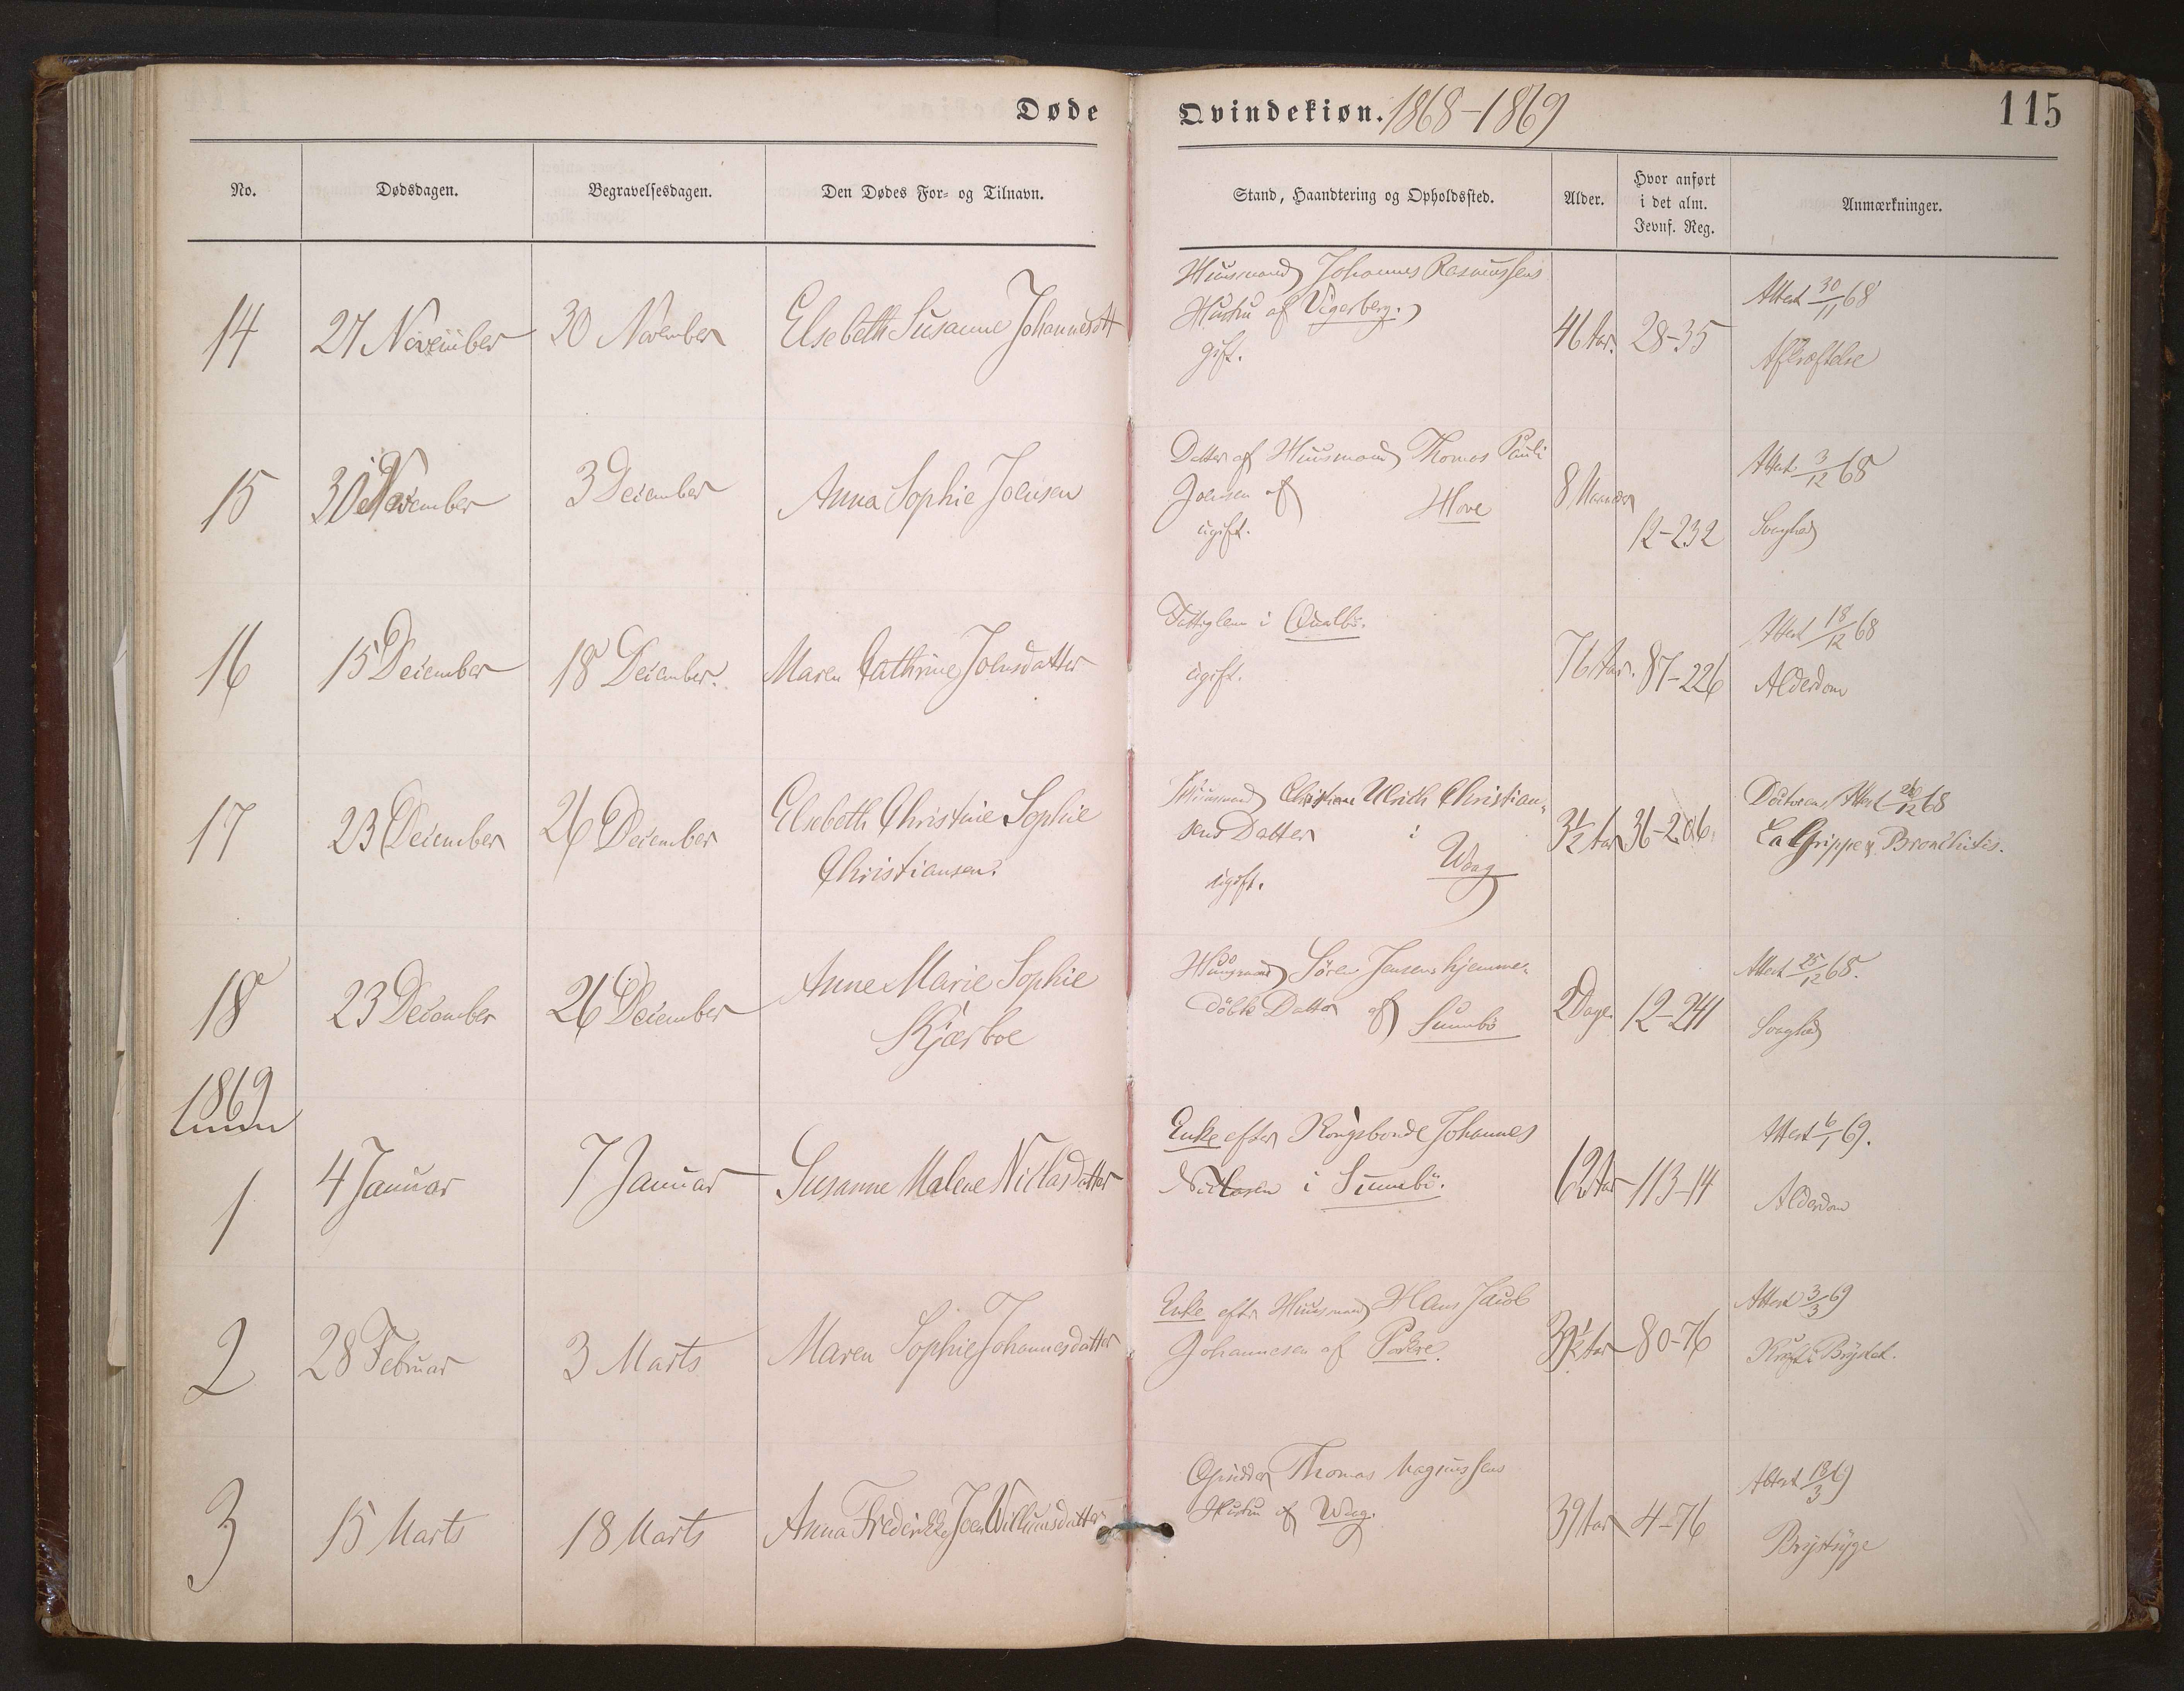 Døde Qvindekiøn. 1868-1869 115
No. Dødsdagen. Begravelsesdagen. Den Dødes For- og Tilnavn. Stand, Haandtering og Opholdssted. Alder. Hvor anført i det alm. Jevnf. Reg. Anmærkninger.
Huusmand Johannes Rasmussens
Hustru af Vigerberg.
gift.
14 27 November 30 November Elsebeth Susanne Johannesdtt 46 Aar. 28-35
Attest 30/11 68
Afkræftelse
Datter af Huusmand Thomas Pauli
Joensen af Hove
ugift.
15 30 November 3 December Anna Sophie Joensen 8 Maaneder
12-232
Attest 3/12 68
Svaghed
Fattiglem i Qualbø.
ugift.
16 15 December 18 December. Maren Cathrine Joensdatter 76 Aar. 87-226
Attest 18/12 68
Alderdom
17 23 December 26 December Elsebeth Christine Sophie
Christiansen.
Huusmand Christian Ulrich Christian-
sens Datter i
Waag
ugift.
3½ Aar 36-206.
Doctorens Attest 26/12 68
La Grippe & Bronchitis.
18 23 December 26 December Anne Marie Sophie
Kjærboe
Huusmand Sören Jensens hjemme-
döbte Datter af Sumbö
2 Dage 12-241
Attest 25/12 68.
Svaghed
1869
1 4 Januar 7 Januar Susanne Malene Niclasdatter
Enke efter Kongsbonde Johannes
Niclasen i Sumbö.
62 Aar 113-14
Attest 6/1 69.
Alderdom
2 28 Februar 3 Marts Maren Sophie Johannesdatter
Enke efter Huusmand Hans Jacob
Johannesen af Porkre.
39½ Aar 80-76
Attest 3/3 69
Kræft i Brystet.
3 15 Marts 18 Marts Anna Frederikke Joen Willumsdatter
Opsidder Thomas Magnussens
Hustru af Waag.
39 Aar 4-76
Attest 18/3 69
Brystsyge